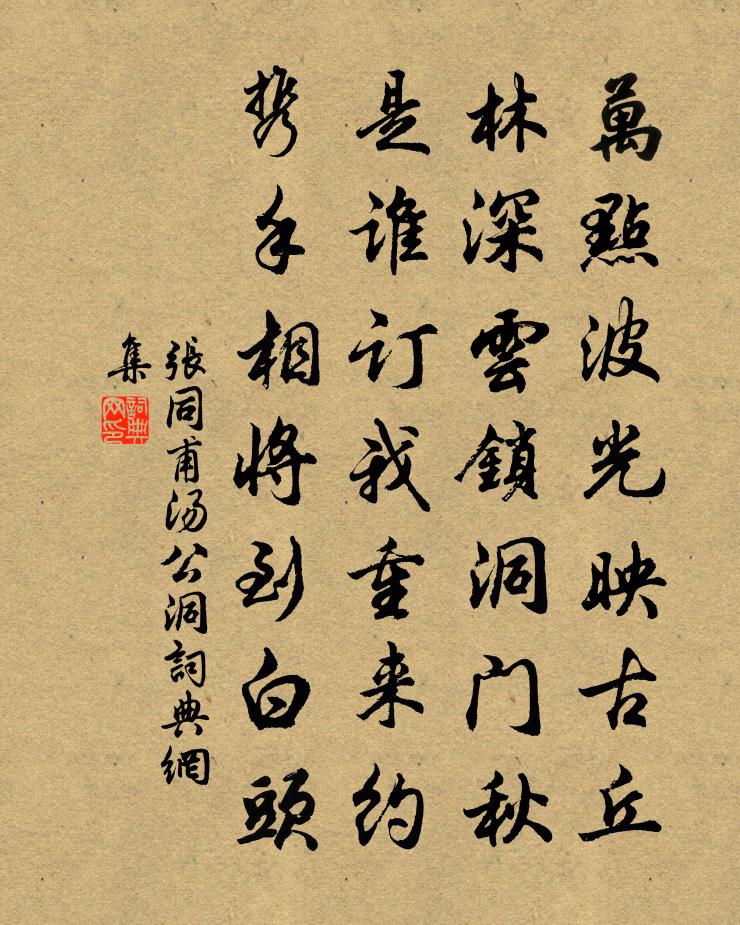 萬點波光映古丘
林深雲鎖洞門秋
是誰訂我重来約
携手相將到白頭
張同甫汤公洞詞典網
集
詞典
网印